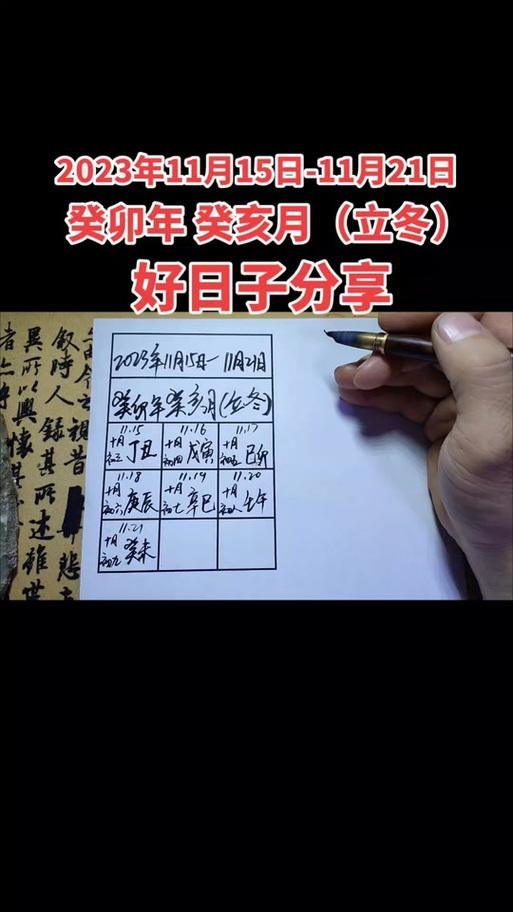 2023年11月15日-11月21日
癸卯年 癸亥月（立冬）
好日子分享
2023年11月15日-11月21日
癸卯年癸亥月(立冬)
11.15
十月
初三
丁丑
11.16
十月
初四
戊寅
11.17
十月
初五
己卯
11.18
十月
初六
庚辰
11.19
十月
初七
辛巳
11.20
十月
初八
壬午
11.21
十月
初九
癸未
由今之視昔悲夫
叙時人録其所述雖世
異所以興懷其